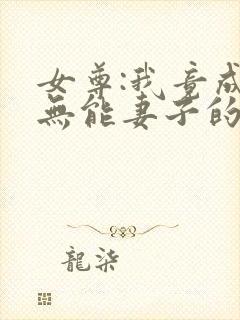 女尊:我竟成
無能妻子的
龍柒